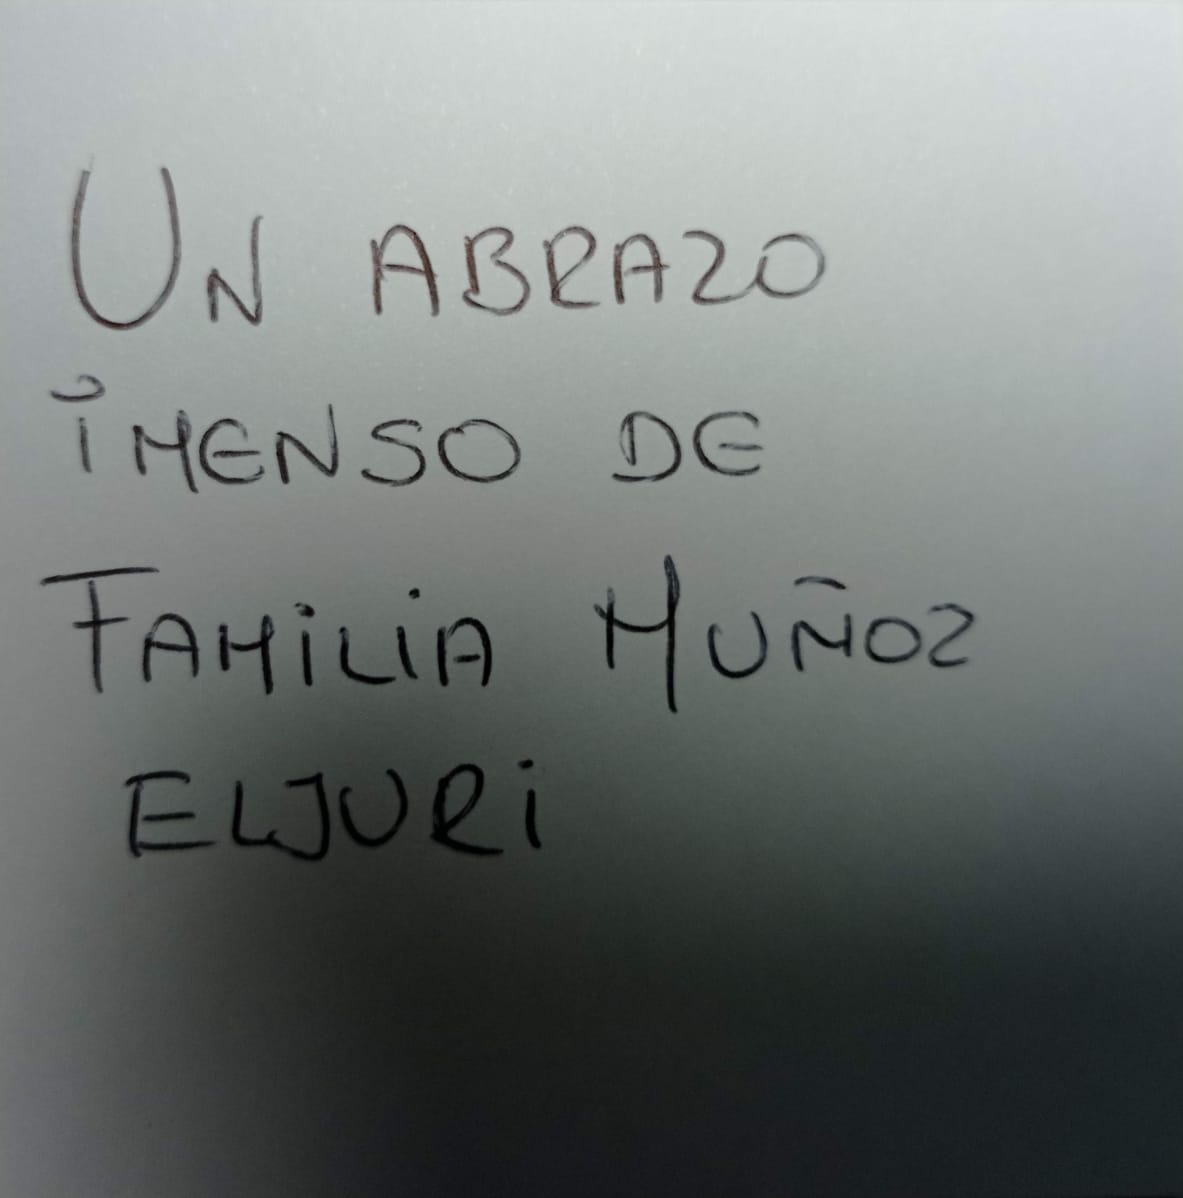 Un abrazo
imenso de
Familia Muñoz
Eljuri